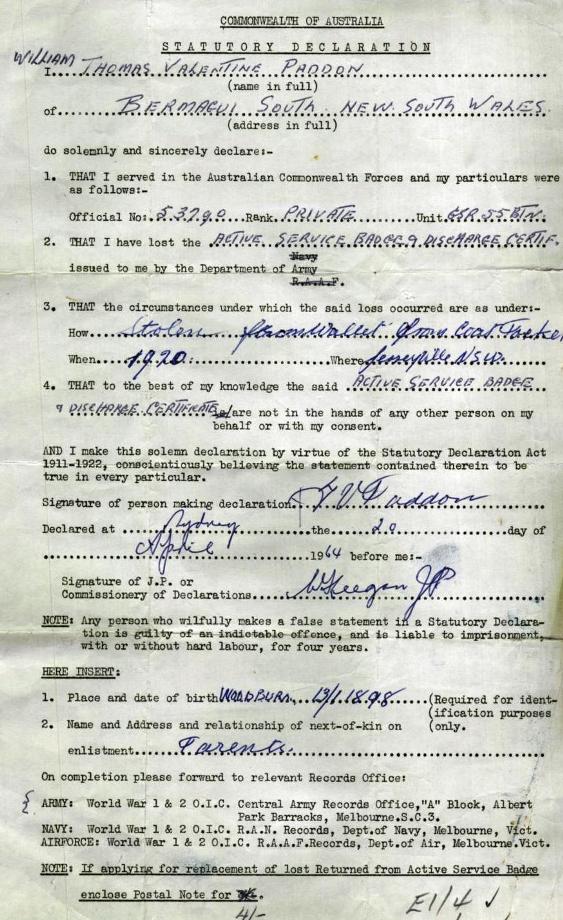 COMMONWEALTH OF AUSTRALIA
STATUTORY DECLARATION
WILLIAM
I....THOMAS VALENTINE PADDON
(name in full)
of......BERMAGUI SOUTH. NEW. SOUTH WALES.
(address in full)
do solemnly and sincerely declare:-
1. THAT I served in the Australian Commonwealth Forces and my particulars were
as follows:-
Official No: 53790 Rank PRIVATE Unit GSR 55 BTN.
2. THAT I have lost the ACTIVE SERVICE BADGE & DISCHARGE CERTIF.
Navy
issued to me by the Department of Army
R.A.A.F.
3. THAT the circumstances under which the said loss occurred are as under:-
How Stolen from Wallet from Coat Pocket
When 1920 Where NSW.
4. THAT to the best of my knowledge the said ACTIVE SERVICE BADGE
& DISCHARGE CERTIFICATE is/are not in the hands of any other person on my
behalf or with my consent.
AND I make this solemn declaration by virtue of the Statutory Declaration Act
1911-1922, conscientiously believing the statement contained therein to be
true in every particular.
Signature of person making declaration TV Paddon
Declared at Sydney the 20 day of
April 1964 before me:-
Signature of J.P. or
Commissionery of Declarations JP
NOTE: Any person who wilfully makes a false statement in a Statutory Declara-
tion is guilty of an indictable offence, and is liable to imprisonment,
with or without hard labour, for four years.
HERE INSERT:
1. Place and date of birth WOODBURN 13/1.1898 (Required for ident-
(ification purposes
2. Name and Address and relationship of next-of-kin on (only.
enlistment Parents.
On completion please forward to relevant Records Office:
ARMY: World War 1 & 2 O.I.C. Central Army Records Office,"A" Block, Albert
Park Barracks, Melbourne.S.C.3.
NAVY: World War 1 & 2 O.I.C. R.A.N. Records, Dept.of Navy, Melbourne, Vict.
AIRFORCE: World War 1 & 2 O.I.C. R.A.A.F.Records, Dept.of Air, Melbourne.Vict.
NOTE: If applying for replacement of lost Returned from Active Service Badge
enclose Postal Note for
4/-
E1/4 ✓